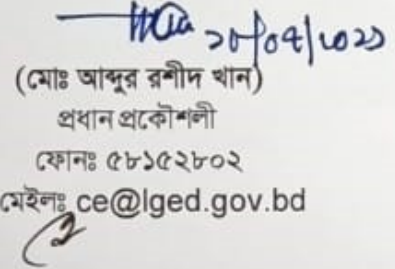 ২৮/০৪/২০২১
(মোঃ আব্দুর রশীদ খান)
প্রধান প্রকৌশলী
ফোনঃ ৫৮১৫২৮০২
মেইলঃ ce@lged.gov.bd